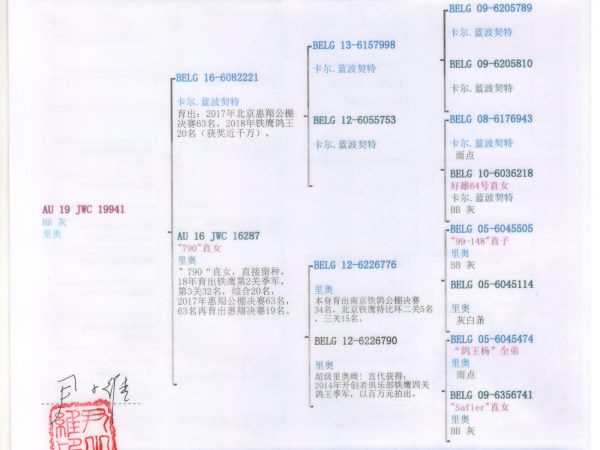 AU 19 JWC 19941
BB 灰
里奥
BELG 16-6082221
卡尔.蓝波契特
育出：2017年北京惠翔公棚
决赛63名，2018年铁鹰鸽王
20名（获奖近千万）。
AU 16 JWC 16287
"790"直女
里奥
"790"直女，直接留种，
18年育出铁鹰第2关季军，
第3关32名，综合20名，
2017年惠翔公棚决赛63名，
63名再育出惠翔决赛19名。
BELG 13-6157998
卡尔.蓝波契特
BELG 12-6055753
卡尔.蓝波契特
BELG 12-6226776
里奥
本身育出南京铁鸽公棚决赛
34名，北京铁鹰特比环二关5名
，三关15名。
BELG 12-6226790
里奥
超级里奥雌！直代获得：
2014年开创者俱乐部铁鹰四关
鸽王季军，以百万元拍出。
BELG 09-6205789
卡尔.蓝波契特
BELG 09-6205810
卡尔.蓝波契特
BELG 08-6176943
卡尔.蓝波契特
雨点
BELG 10-6036218
好雄64号直女
卡尔.蓝波契特
BB 灰
BELG 05-6045505
"99-148"直子
里奥
BB 灰
BELG 05-6045114
里奥
灰白条
BELG 05-6045474
"鸽王杨"全弟
里奥
雨点
BELG 09-6356741
"Safier"直女
里奥
BB 灰